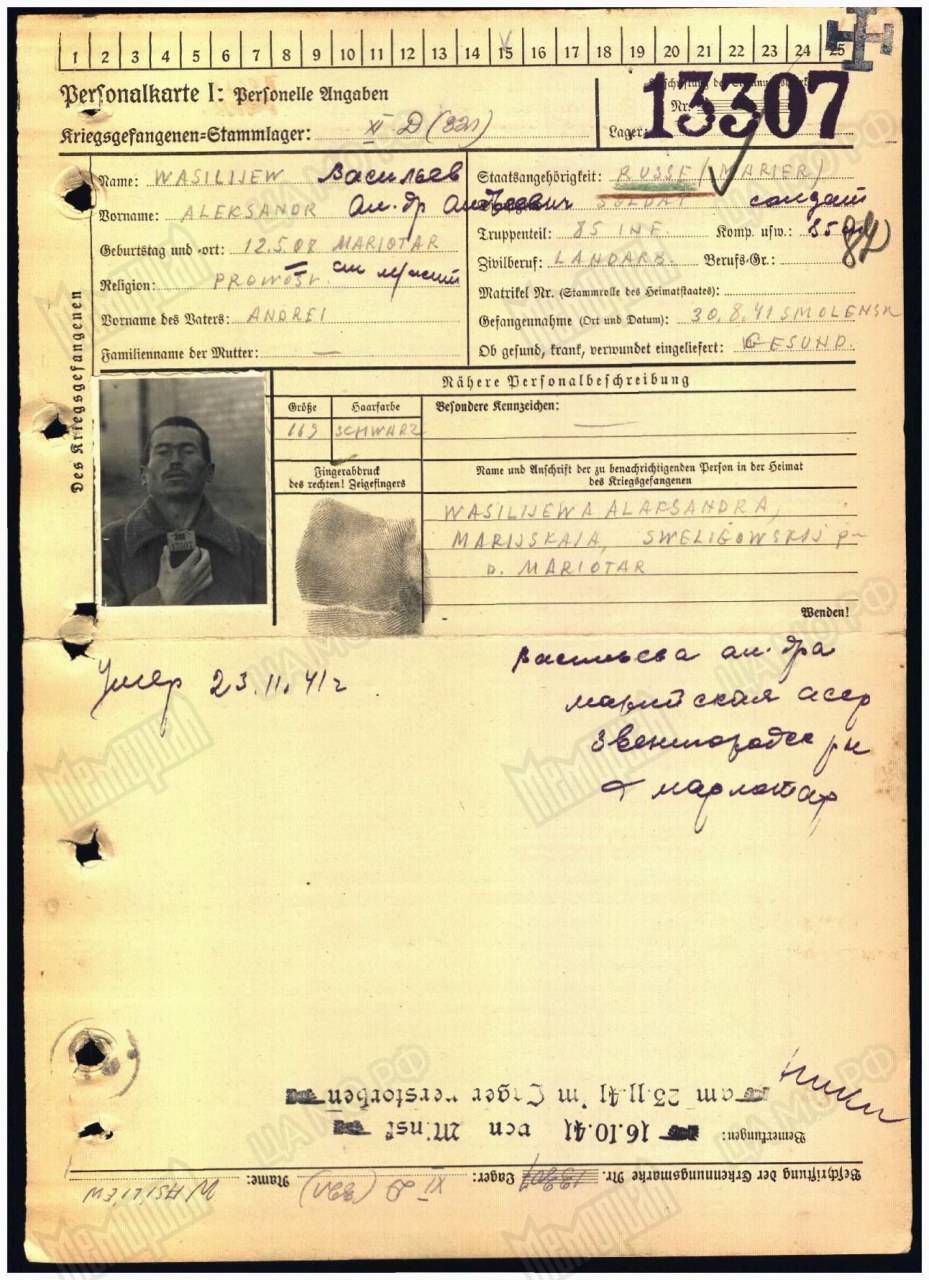 1 2 3 4 5 6 7 8 9 10 11 12 13 14 15 16 17 18 19 20 21 22 23 24 25
Personalkarte I: Personelle Angaben
Kriegsgefangenen=Stammlager: XI D (321)
Nr.
Lager:
13307
Des Kriegsgefangenen
Name: WASILIJEW Васильев
Vorname: ALEKSANDR Ал-др Андреевич
Geburtstag und =ort: 12.5.08 MARIOTAR
Religion:
Vorname des Vaters: ANDREI
Familienname der Mutter: —
Staatsangehörigkeit: RUSSE (MARIER)
SOLDAT солдат
Truppenteil: 85 INF. Komp. usw.:
Zivilberuf: LANDARB. Berufs-Gr.:
Matrikel Nr. (Stammrolle des Heimatstaates):
Gefangennahme (Ort und Datum): 30.8.41 SMOLENSK
Ob gesund, krank, verwundet eingeliefert: GESUND.
Nähere Personalbeschreibung
Größe Haarfarbe Besondere Kennzeichen:
169 SCHWARZ —
Fingerabdruck
des rechten! Zeigefingers
Name und Anschrift der zu benachrichtigenden Person in der Heimat
des Kriegsgefangenen
WASILIJEWA ALAKSANDRA,
MARIJSKAJA, SWELIGOWSKIJ p-
D. MARIOTAR
Wenden!
Умер 23.11.41г
Васильева ал-дра
марийская асср
Звенигородск рн
д марлотар
Bemerkungen: 16.10.41 von Minsk
am 23.11.41 im Lager verstorben
Beschriftung der Erkennungsmarke Nr. 13307 Lager: XI D (321) Name: WASILIEW
МЕМОРИАЛ
ЦАМО.РФ